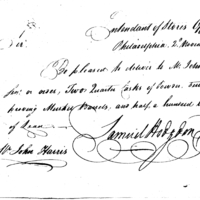 Intendant of Stores Off
Philadelphia 2d
Sir
Be pleased to deliver to Mr John
five or seven, Two Quarter Casks of Powder
proving Musket Barrels, and half a hundred
of Lead
Samuel Hodgdon
Mr John Harris